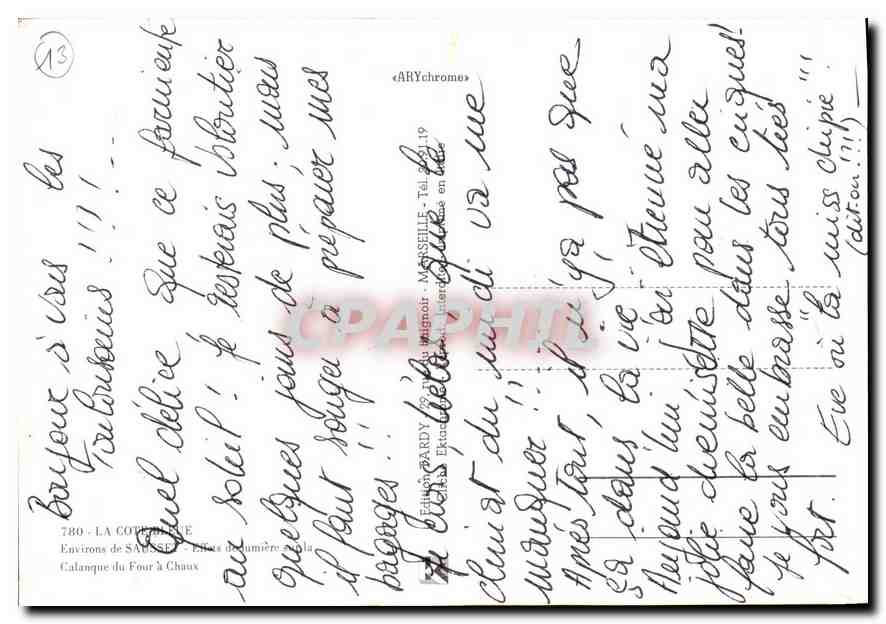 13
Bonjour à vous les
Toulousains !!!!
Quel délice que ce farniente
au soleil ! je resterais volontier
quelques jours de plus, mais
il faut songer à préparer mes
bagages... !!
Je crois, hélas que le
climat du midi va me
manquer !...!!...
Après tout, il n'y a pas que
ça dans la vie...!
Aujourd'hui j'ai étrenné ma
jolie chemisette pour aller
faire la belle dans les
je vous embrasse tous très
fort. Eve ou "la miss chipie" !!
(dit-on !?!)
«ARYchrome»
780 - LA COTE BLEUE
Environs de SAUSSET - Effets de lumière sur la
Calanque du Four à Chaux
Edition TARDY - 29, rue du - MARSEILLE - Tél. 20.91.19
Cliché Ektachrome - Interdite - Imprimé en Italie
CPAPHIL